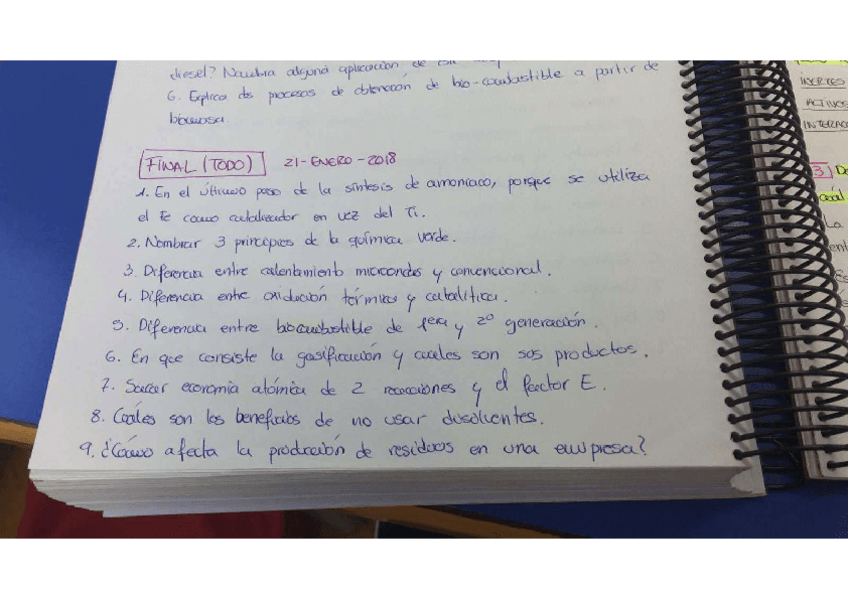 diesel? Nombra alguna aplicación de
6. Explica dos procesos de obtención de bio-combustible a partir de
biomasa.
FINAL (TODO) 21-ENERO-2018
1. En el último paso de la síntesis de amoniaco, porque se utiliza
el Fe como catalizador en vez del Ti.
2. Nombrar 3 principios de la química verde.
3. Diferencia entre calentamiento microondas y convencional.
4. Diferencia entre oxidación térmica y catalítica.
5. Diferencia entre biocombustible de 1era y 2º generación.
6. En que consiste la gasificación y cuales son sos productos.
7. Sacar economía atómica de 2 reacciones y el factor E.
8. Cuáles son los beneficios de no usar disolventes.
9. ¿Cómo afecta la producción de residuos en una empresa?
INERTES
ACTIVOS
3)
La